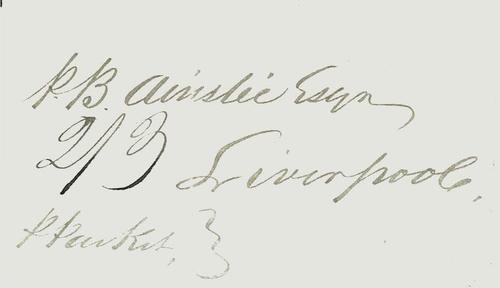 P.B. Ainslie Esqr
2/3 Liverpool.
P Packet, }